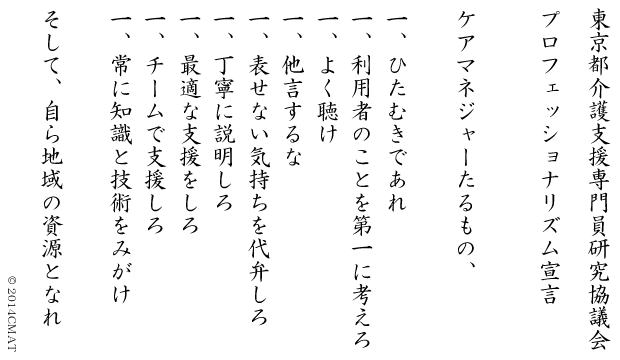 東京都介護支援専門員研究協議会
プロフェッショナリズム宣言
ケアマネジャーたるもの、
一、ひたむきであれ
一、利用者のことを第一に考えろ
一、よく聴け
一、他言するな
一、表せない気持ちを代弁しろ
一、丁寧に説明しろ
一、最適な支援をしろ
一、チームで支援しろ
一、常に知識と技術をみがけ
そして、自ら地域の資源となれ
© 2014CMAT